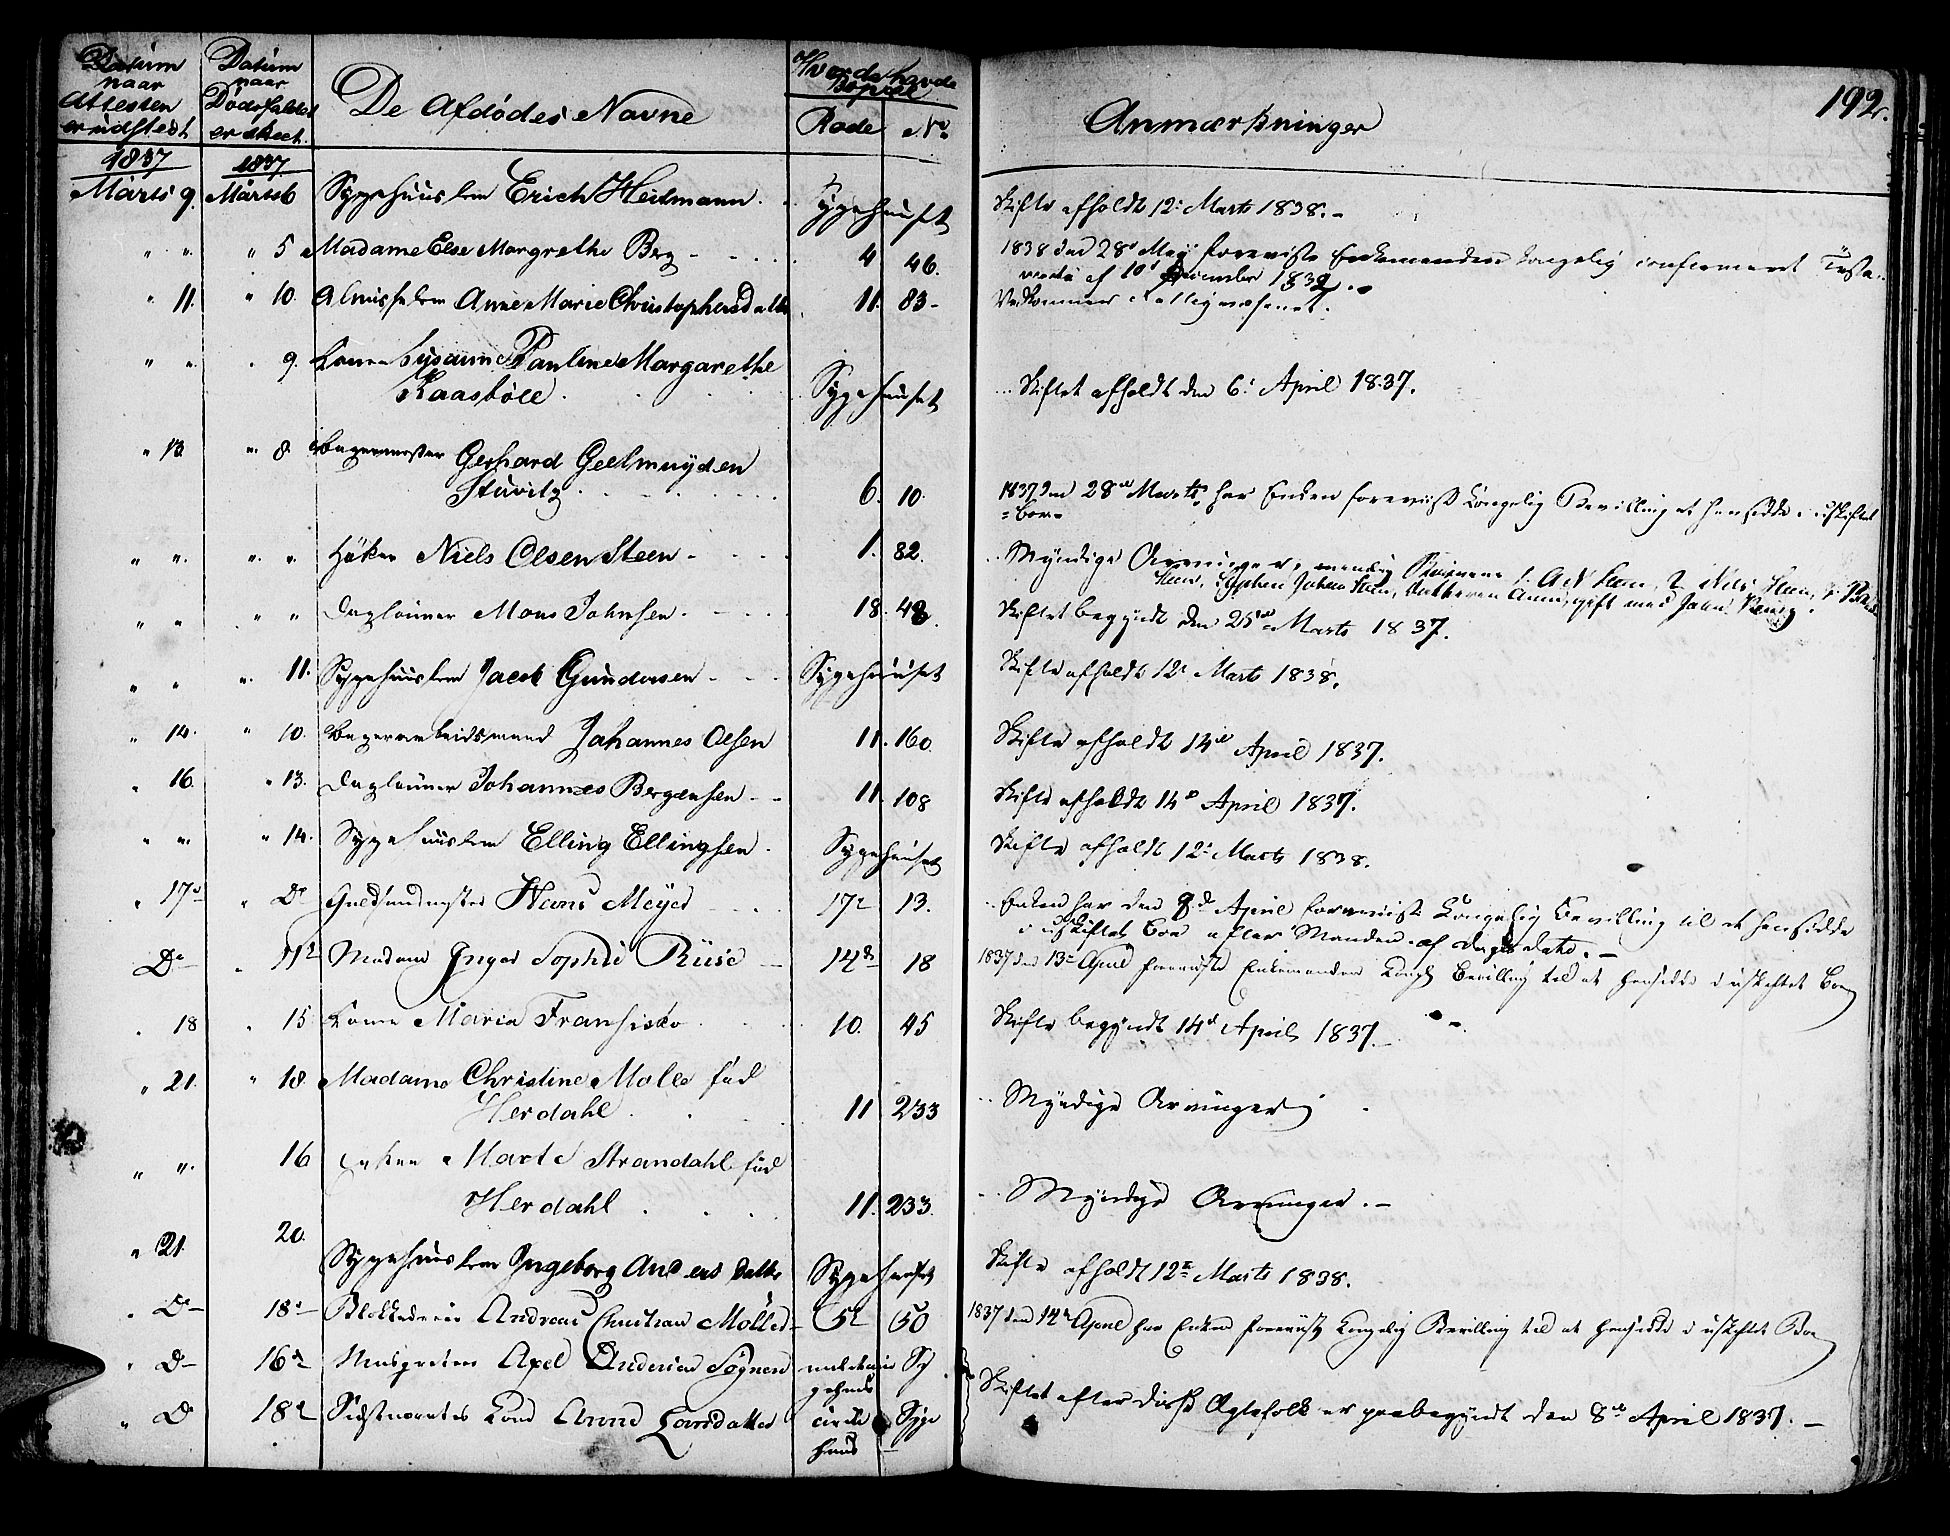 192.
Datum naar Attesten er udstedt
Datum naar Dødsfaldet er skeet.
De Afdødes Navne
Hvor de havde Bopæl
Rode No
Anmærkninger
1837 1837.
Marts 9. Marts 6 Sygehuuslem Erich Heitmann. Sygehuset Skifte afholdt 12. Marts 1838.
" " " 5 Madame Else Margrethe Berg 4 46. 1838 den 28de May foreviste Enkemanden Kongelig confirmeret Testa-
af 10d December 1832.
" 11. " 10. Almisselem Anne Marie Christophersdatter 11. 83 Vedkommer Fattigvæsenet.
" " " 9. Konen Susanne Pauline Margarethe
Kaasbøll. Sygehuset Skiftet afholdt den 6. April 1837.
" 13. " 8. Bagermester Gerhard Geelmuyden
Sturitz 6. 10. 1837 den 28de Marts har Enken foreviist Kongelig Bevilling at hensidde i uskiftet
Boe
" " " " Høker Niels Olsen Steen 1. 82. Myndige Arvinger, nemlig Børnene 1. A N Steen, 2. Nils Steen, 3.
Steen, Stephen Johan Steen, Datteren Anne, gift med John
" " " " Dagleiner Mons Johnsen 18. 48. Skiftet begyndt den 25de Marts 1837.
" " " 11. Sygehuuslem Jacob Gundersen Sygehuuset Skifte afholdt 12. Marts 1838.
" 14. " 10. Bagerarbeidsmand Johannes Olsen 11. 160. Skifte afholdt 14de April 1837.
" 16. " 13. Dagleiner Johannes Bergensen 11. 108 Skifte afholdt 14d April 1837.
" " " 14. Sygehuuslem Elling Ellingsen. Sygehuset Skifte afholdt 12. Marts 1838.
" 17d " Do Guldsmedmester Hans Meyer 17d 13. Enken har den 8de April foreviist Kongelig Bevilling til at hensidde
i uskiftet Boe efter Manden af Dags Dato.
Do " 11d Madame Inger Sophie Riise 14de 18 1837 den 13de April foreviste Enkemanden Kongl Bevilling til at hensidde i uskiftet Boe
" 18 " 15 Konen Maria Fransisko 10. 45 Skifte begyndt 14d April 1837.
" 21. " 18. Madame Christine Molle fød
Herdahl. 11 233 Myndige Arvinger
" " 16 Enken Marte Strandahl fød
Herdahl 11. 233. Myndige Arvinger.
" 21. 20. Sygehuuslem Ingeborg Andersdatter Sygehuset Skifte afholdt 12te Marts 1838.
" D 18d Andreas Christian Møller 5d 50 1837 den 14de April har Enken foreviist Kongelig Bevilling til at hensidde i uskiftet Boe
" D 16de Axel Anderson Søgnen Sygehuus
" D 18d Kone Anne Larsdatter civile Sygehuus Skiftet efter disse Ægtefolk er paabegyndt den 8de April 1837.